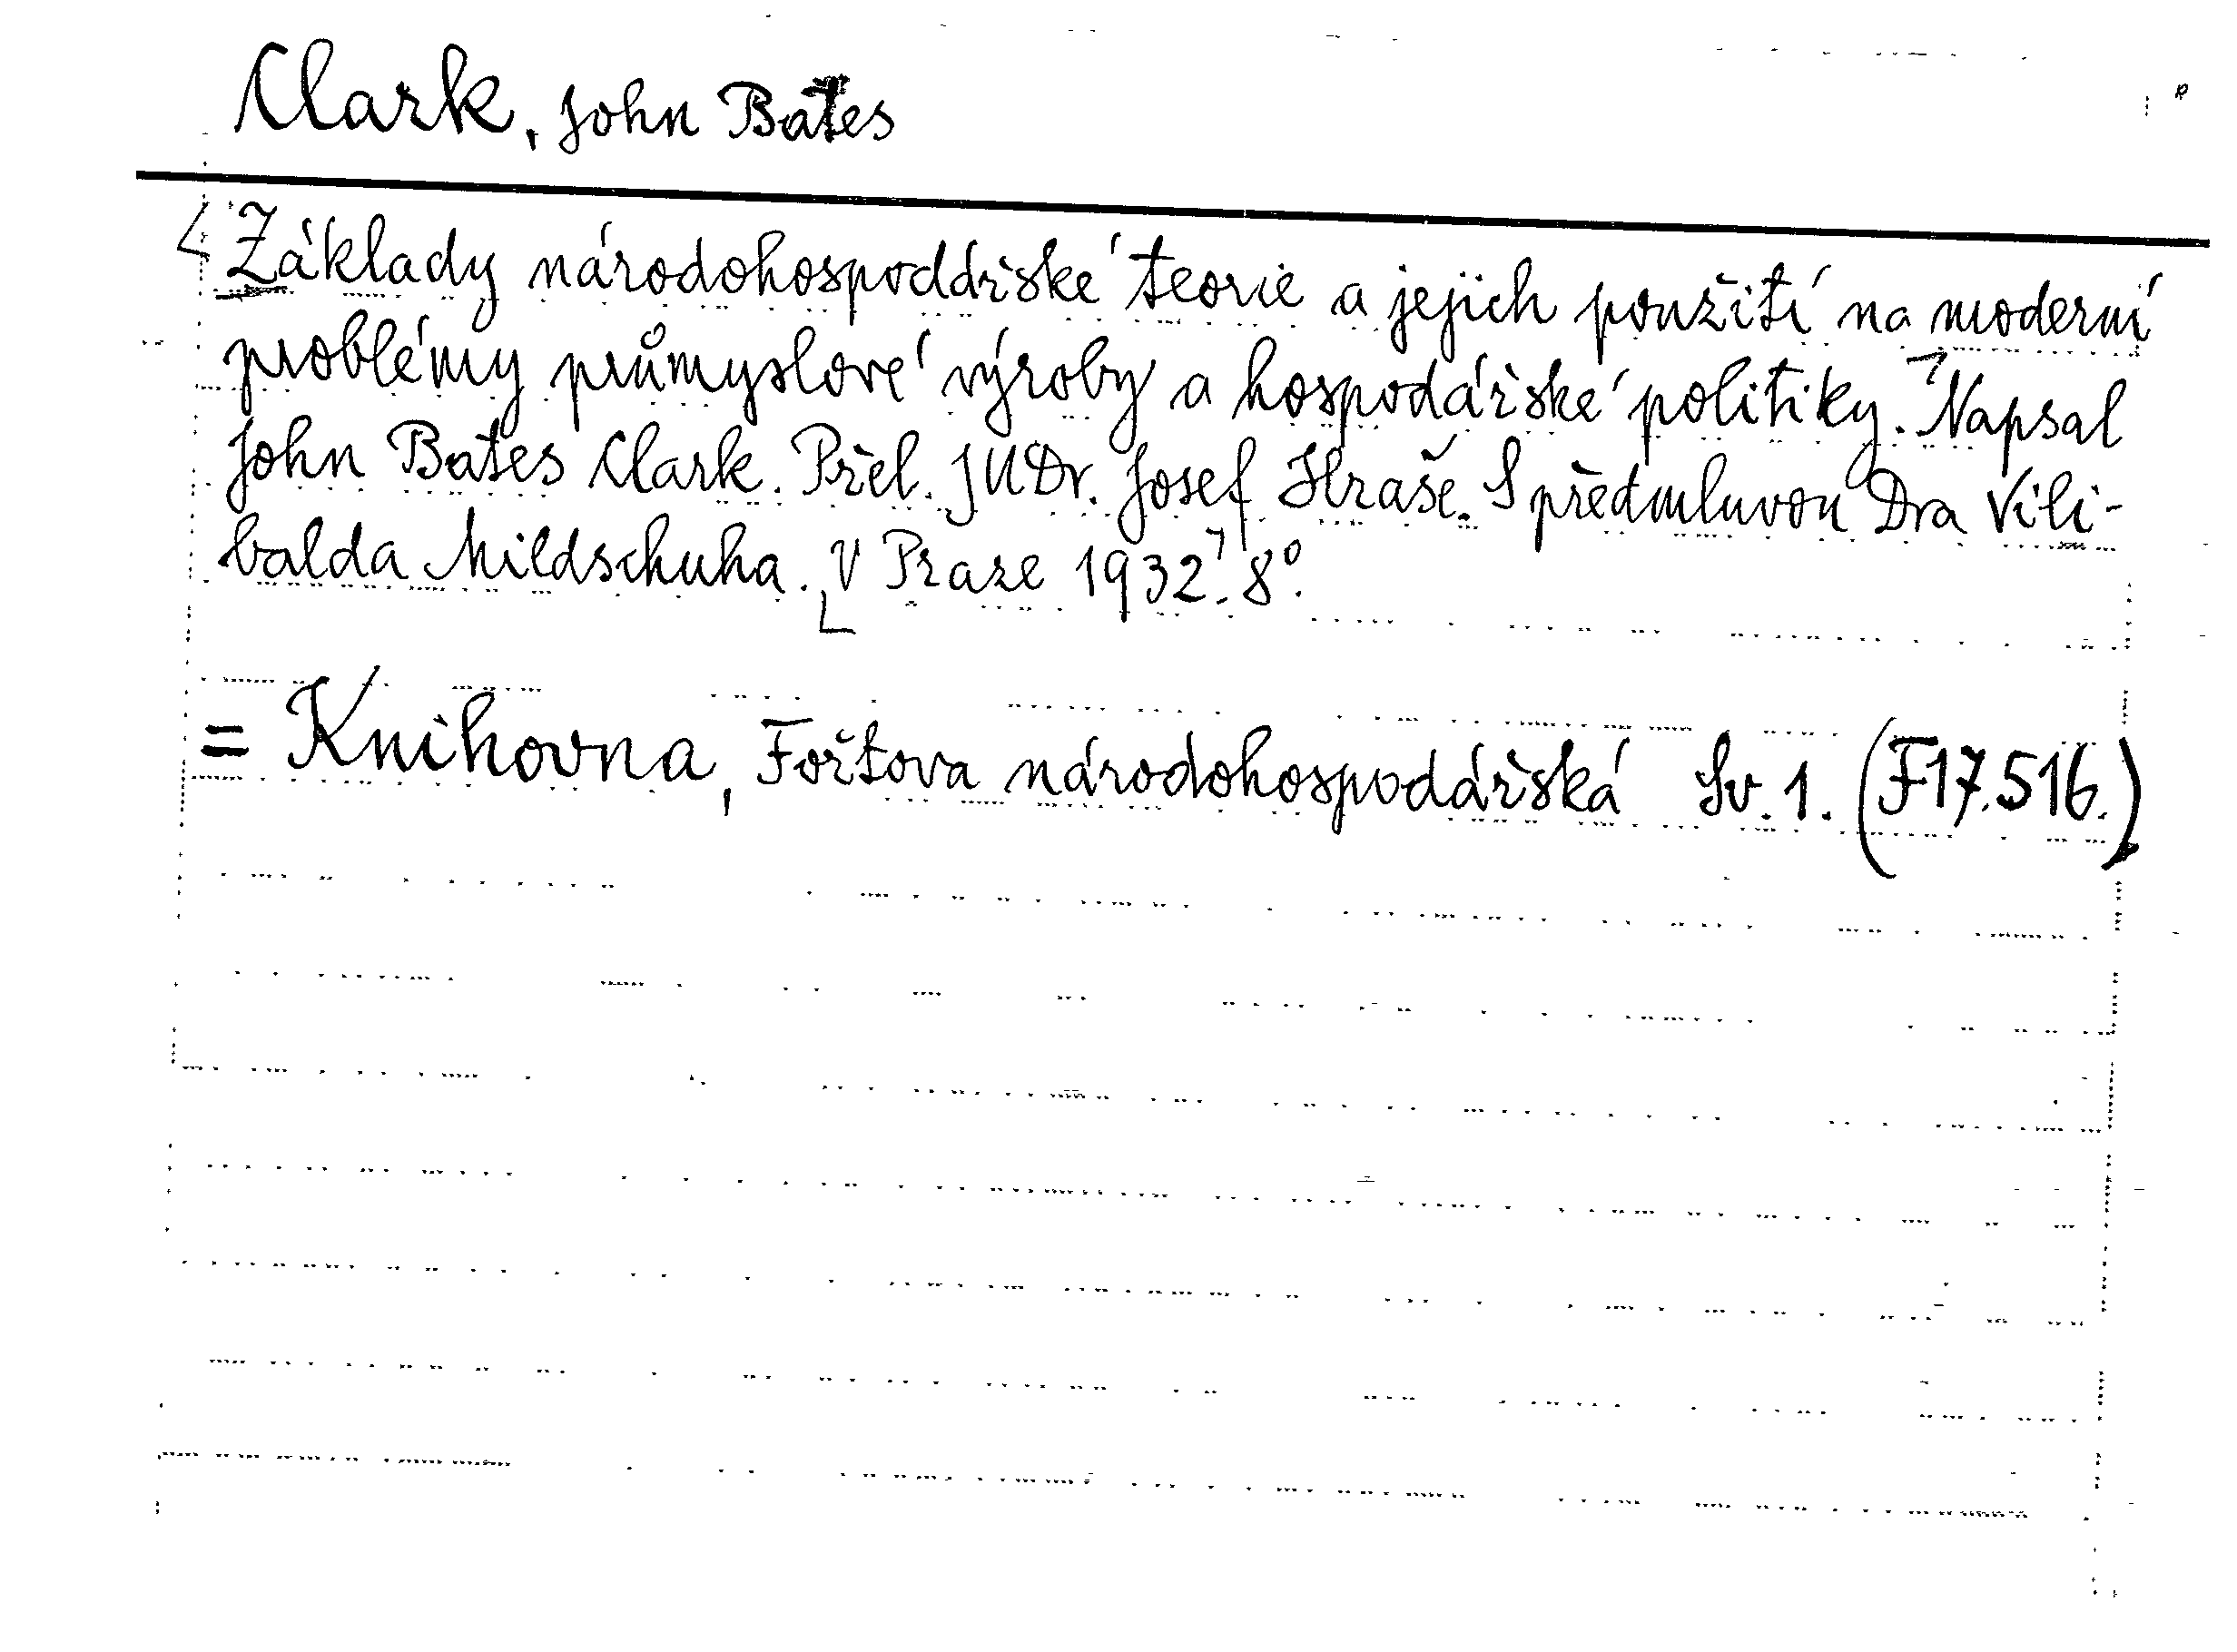 Clark, John Bates
Základy národohospodářské teorie a jejich použití na moderní
problémy průmyslové výroby a hospodářské politiky. Napsal
John Bates Clark. Přel. JUDr. Josef Hraše. S předmluvou Dra Vili-
balda Mildschuha. V Praze 1932. 8°.
= Knihovna, Fořtova národohospodářská Sv. 1. (F17.516.)